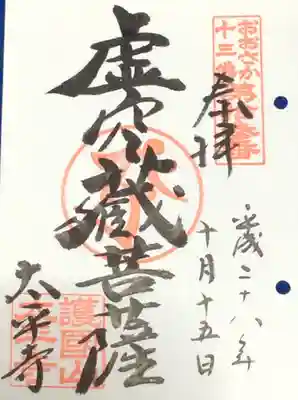 おおさか
十三佛
奉拝
平成二十八年
十月十五日
虚空蔵菩薩
護国山
太平寺